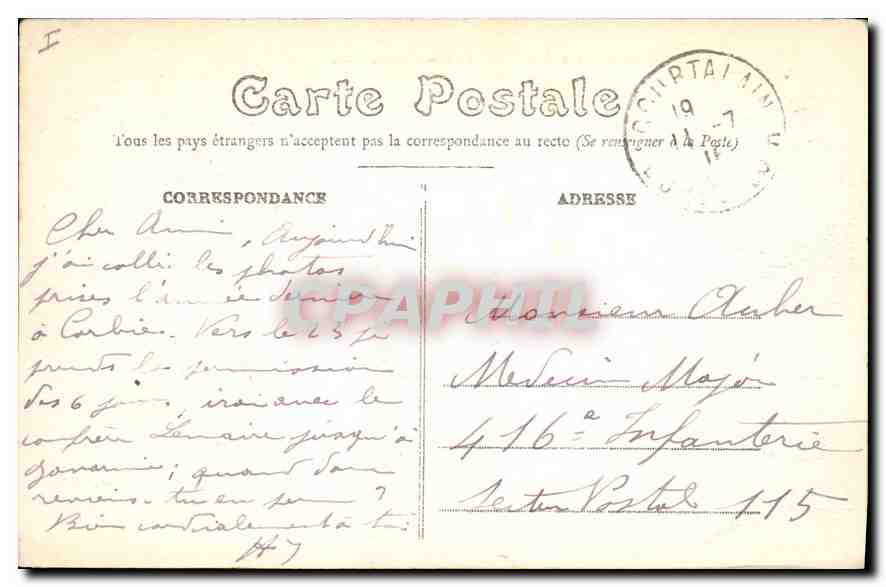 I
Carte Postale
COURTALAIN
19
11 -7
Tous les pays étrangers n'acceptent pas la correspondance au recto (Se renseigner à la Poste)
CORRESPONDANCE
ADRESSE
Cher Ami, Aujourd'hui
j'ai collé les photos
prises l'année dernière
à Corbie. Vers le 25 je
prends la permission
des 6 jours, irai avec le
confrère Lemaire jusqu'à
Gavarnie; quand
reviens-tu en perm ?
Bien cordialement à toi
Monsieur Auber
Medecin Major
416e Infanterie
Secteur Postal 115
CPAPHIL